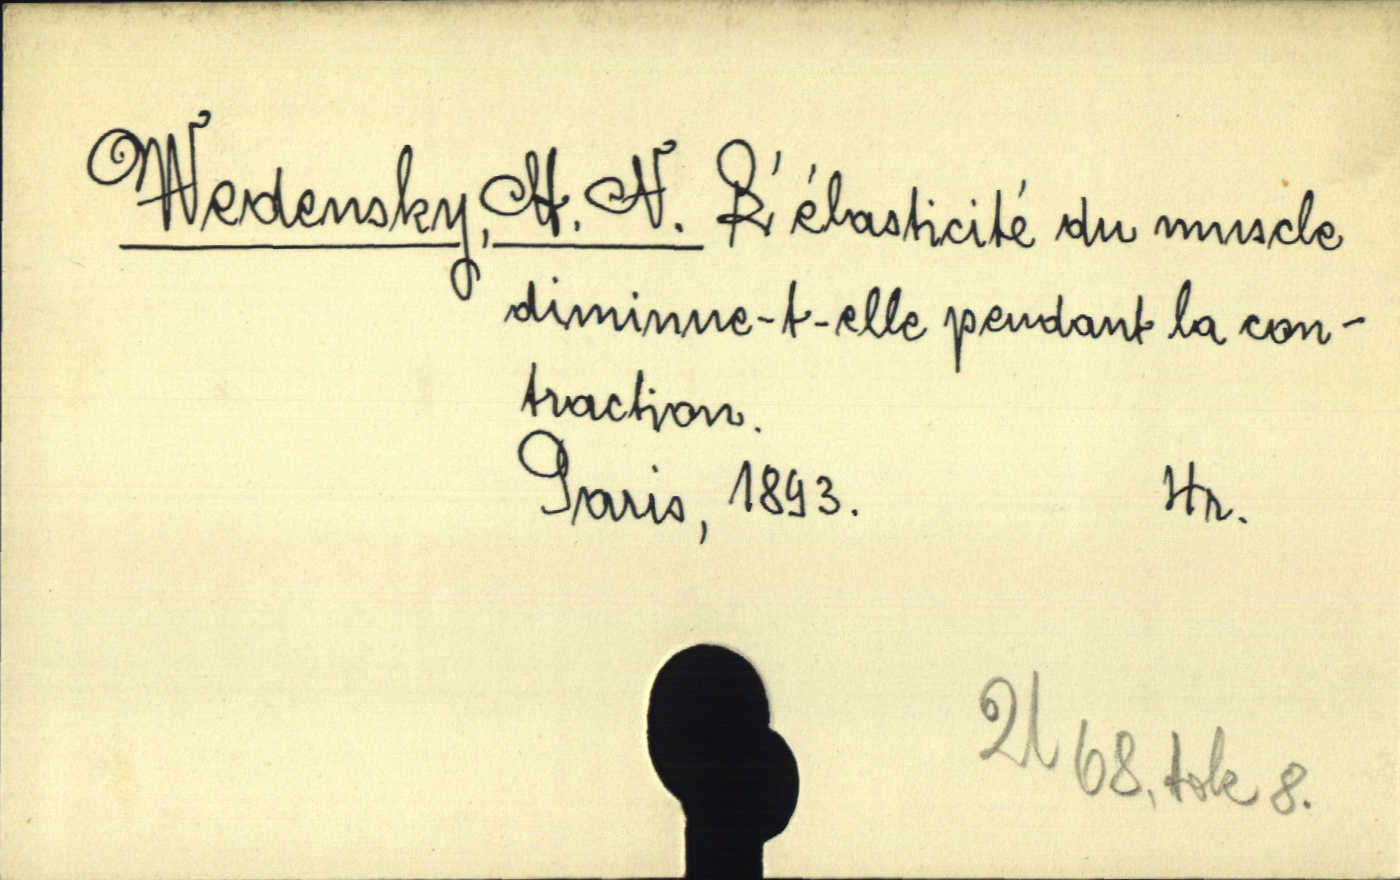 Wedensky, A. N. L'élasticité du muscle
diminue-t-elle pendant la con-
traction.
Paris, 1893. Hr.
68, tok 8.